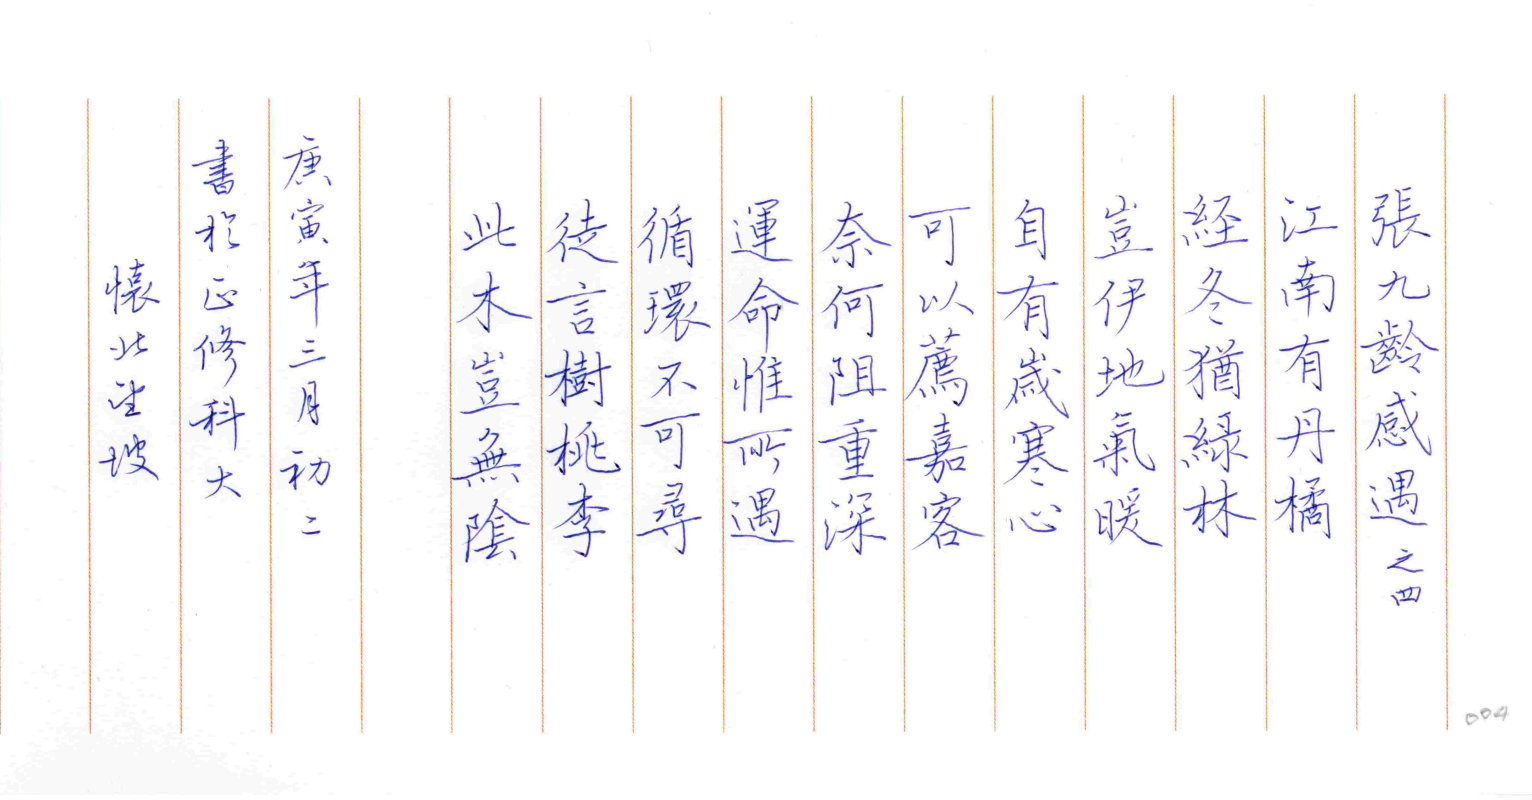 張九齡感遇之四
江南有丹橘
経冬猶綠林
豈伊地氣暖
自有歲寒心
可以薦嘉客
奈何阻重深
運命惟所遇
循環不可尋
徒言樹桃李
此木豈無陰
庚寅年三月初二
書於正修科大
懷北望坡
004